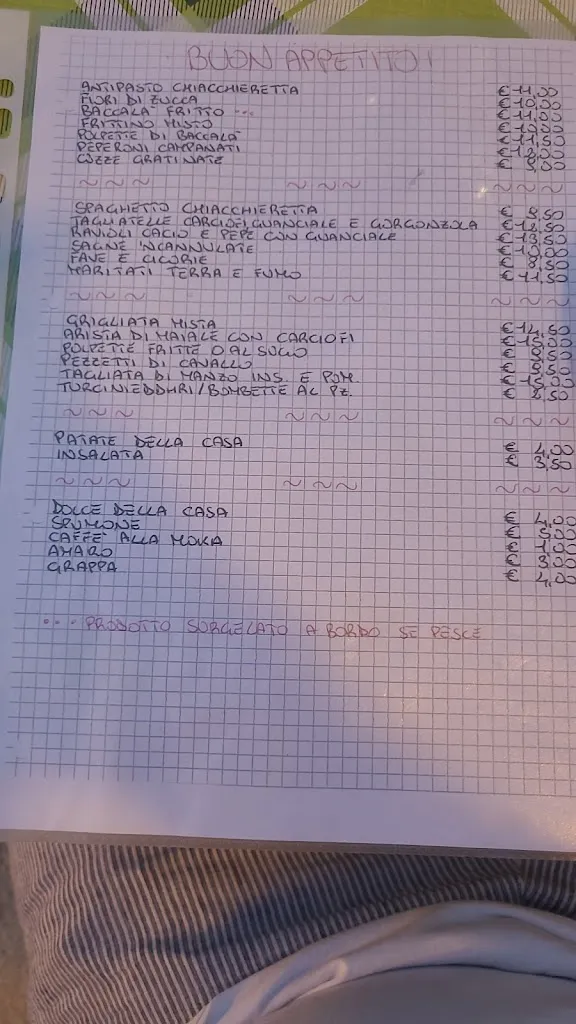 BUON APPETITO!
ANTIPASTO CHIACCHIERETTA € 11,00
FIORI DI ZUCCA € 10,00
BACCALA' FRITTO --- € 11,00
FRITTINO MISTO € 10,00
POLPETTE DI BACCALA' € 11,50
PEPERONI CAMPANATI
COZZE GRATINATE
~ ~ ~ ~ ~ ~ ~ ~ ~
SPAGHETTO CHIACCHIERETTA € 9,50
TAGLIATELLE CARCIOFI, GUANCIALE E GORGONZOLA € 12,50
RAVIOLI CACIO E PEPE CON GUANCIALE € 13,50
SAGNE 'NCANNULATE € 10,00
FAVE E CICORIE € 8,50
MARITATI TERRA E FUMO € 11,50
~ ~ ~ ~ ~ ~ ~ ~ ~
GRIGLIATA MISTA € 14,50
ARISTA DI MAIALE CON CARCIOFI € 15,00
POLPETTE FRITTE O AL SUGO
PEZZETTI DI CAVALLO € 9,50
TAGLIATA DI MANZO INS. E POM. € 15,00
TURCINIEDDHRI/BOMBETTE AL PZ. € 2,50
~ ~ ~ ~ ~ ~ ~ ~ ~
PATATE DELLA CASA € 4,00
INSALATA € 3,50
~ ~ ~ ~ ~ ~ ~ ~ ~
DOLCE DELLA CASA € 4,00
SPUMONE € 5,00
CAFFE' ALLA MOKA € 1,00
AMARO € 3,00
GRAPPA € 4,00
--- PRODOTTO SURGELATO A BORDO SE PESCE